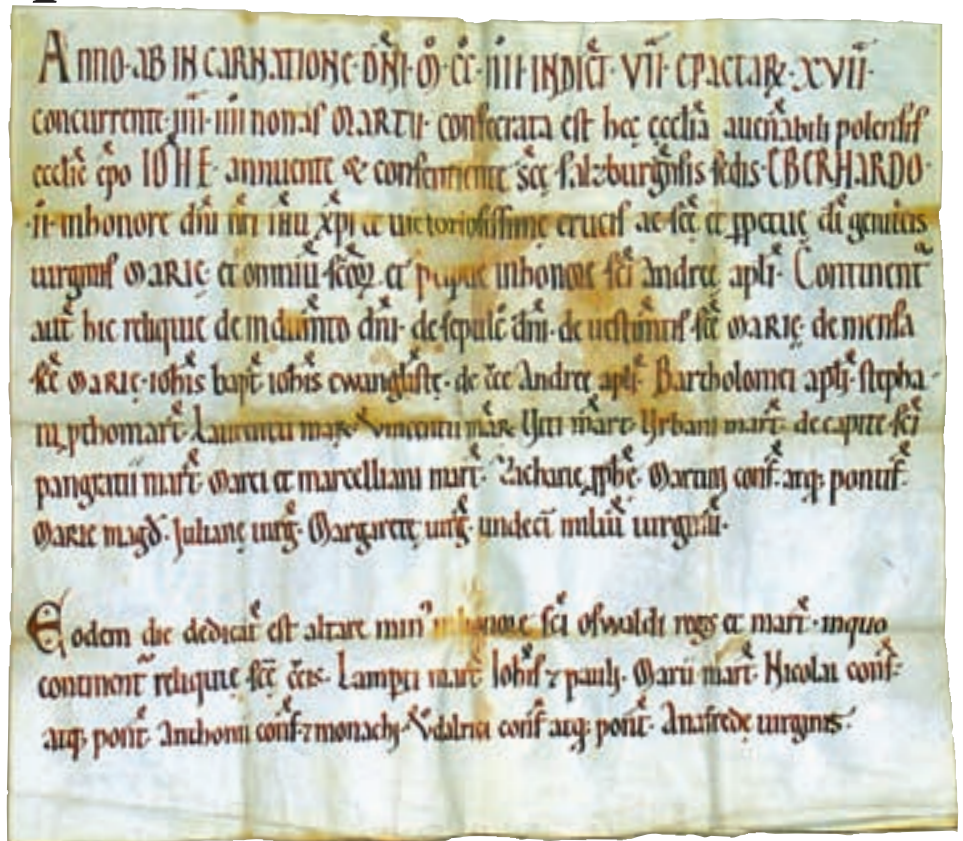 Anno·ab incarnatione·dñi·ṁ·cc·iiii·indict̃·vii·epactarꝝ·xvii·
concurrente·iiii·iiii nonas martii·consecrata est hec ęcclia auenerabili polensis
ecclie ep̃o IOHE·annuente & consentiente sc̃ę salzburgensis sedis·EBERHARDO·
·ii·inhonore dñi nri ihu xp̃i et uictoriosissime crucis ac·sc̃ę et ꝑpetuę dĩ genitcis
uirginis MARIĘ·et omniũ·sc̃oꝝ·et inhonore sc̃i Andreę apłi·Continent̃
aut̃ hic reliquie de dñi·de sepulc̃ dñi·de uestim̃tis sc̃ę MARIĘ·de mensa
sc̃ę MARIĘ·iohis bapt̃ iohis ewanglistę·de c̃ce Andreę apłi·Bartholomei apłi·stepha-
ni, pthomart̃·Laurentii mar̃·Vincentii mar̃·Viti mart̃·Vrbani mart̃·de capite·sc̃i
pangratii mart̃·Marci et marcelliani mart̃·Zacharię ꝓphẽ·Martini conf̃·atq; pontif̃·
MARIE magd̃·Julianę uirg̃·Margaretę uirg̃·undeci miliũ uirginũ·
Eodem die dedicat̃ est altare min9 inhonore sc̃i oswaldi regis et mart̃·inquo
continent̃ reliquię sc̃ę c̃cis·Lamp̃ti mart̃ Iohis ⁊ pauli·Marii mart̃·Nicolai conf̃·
atq; pont̃·Anthonii conf̃·⁊ monachi·Vdalrici conf̃ atq; pont̃·Anafredę uirginis·